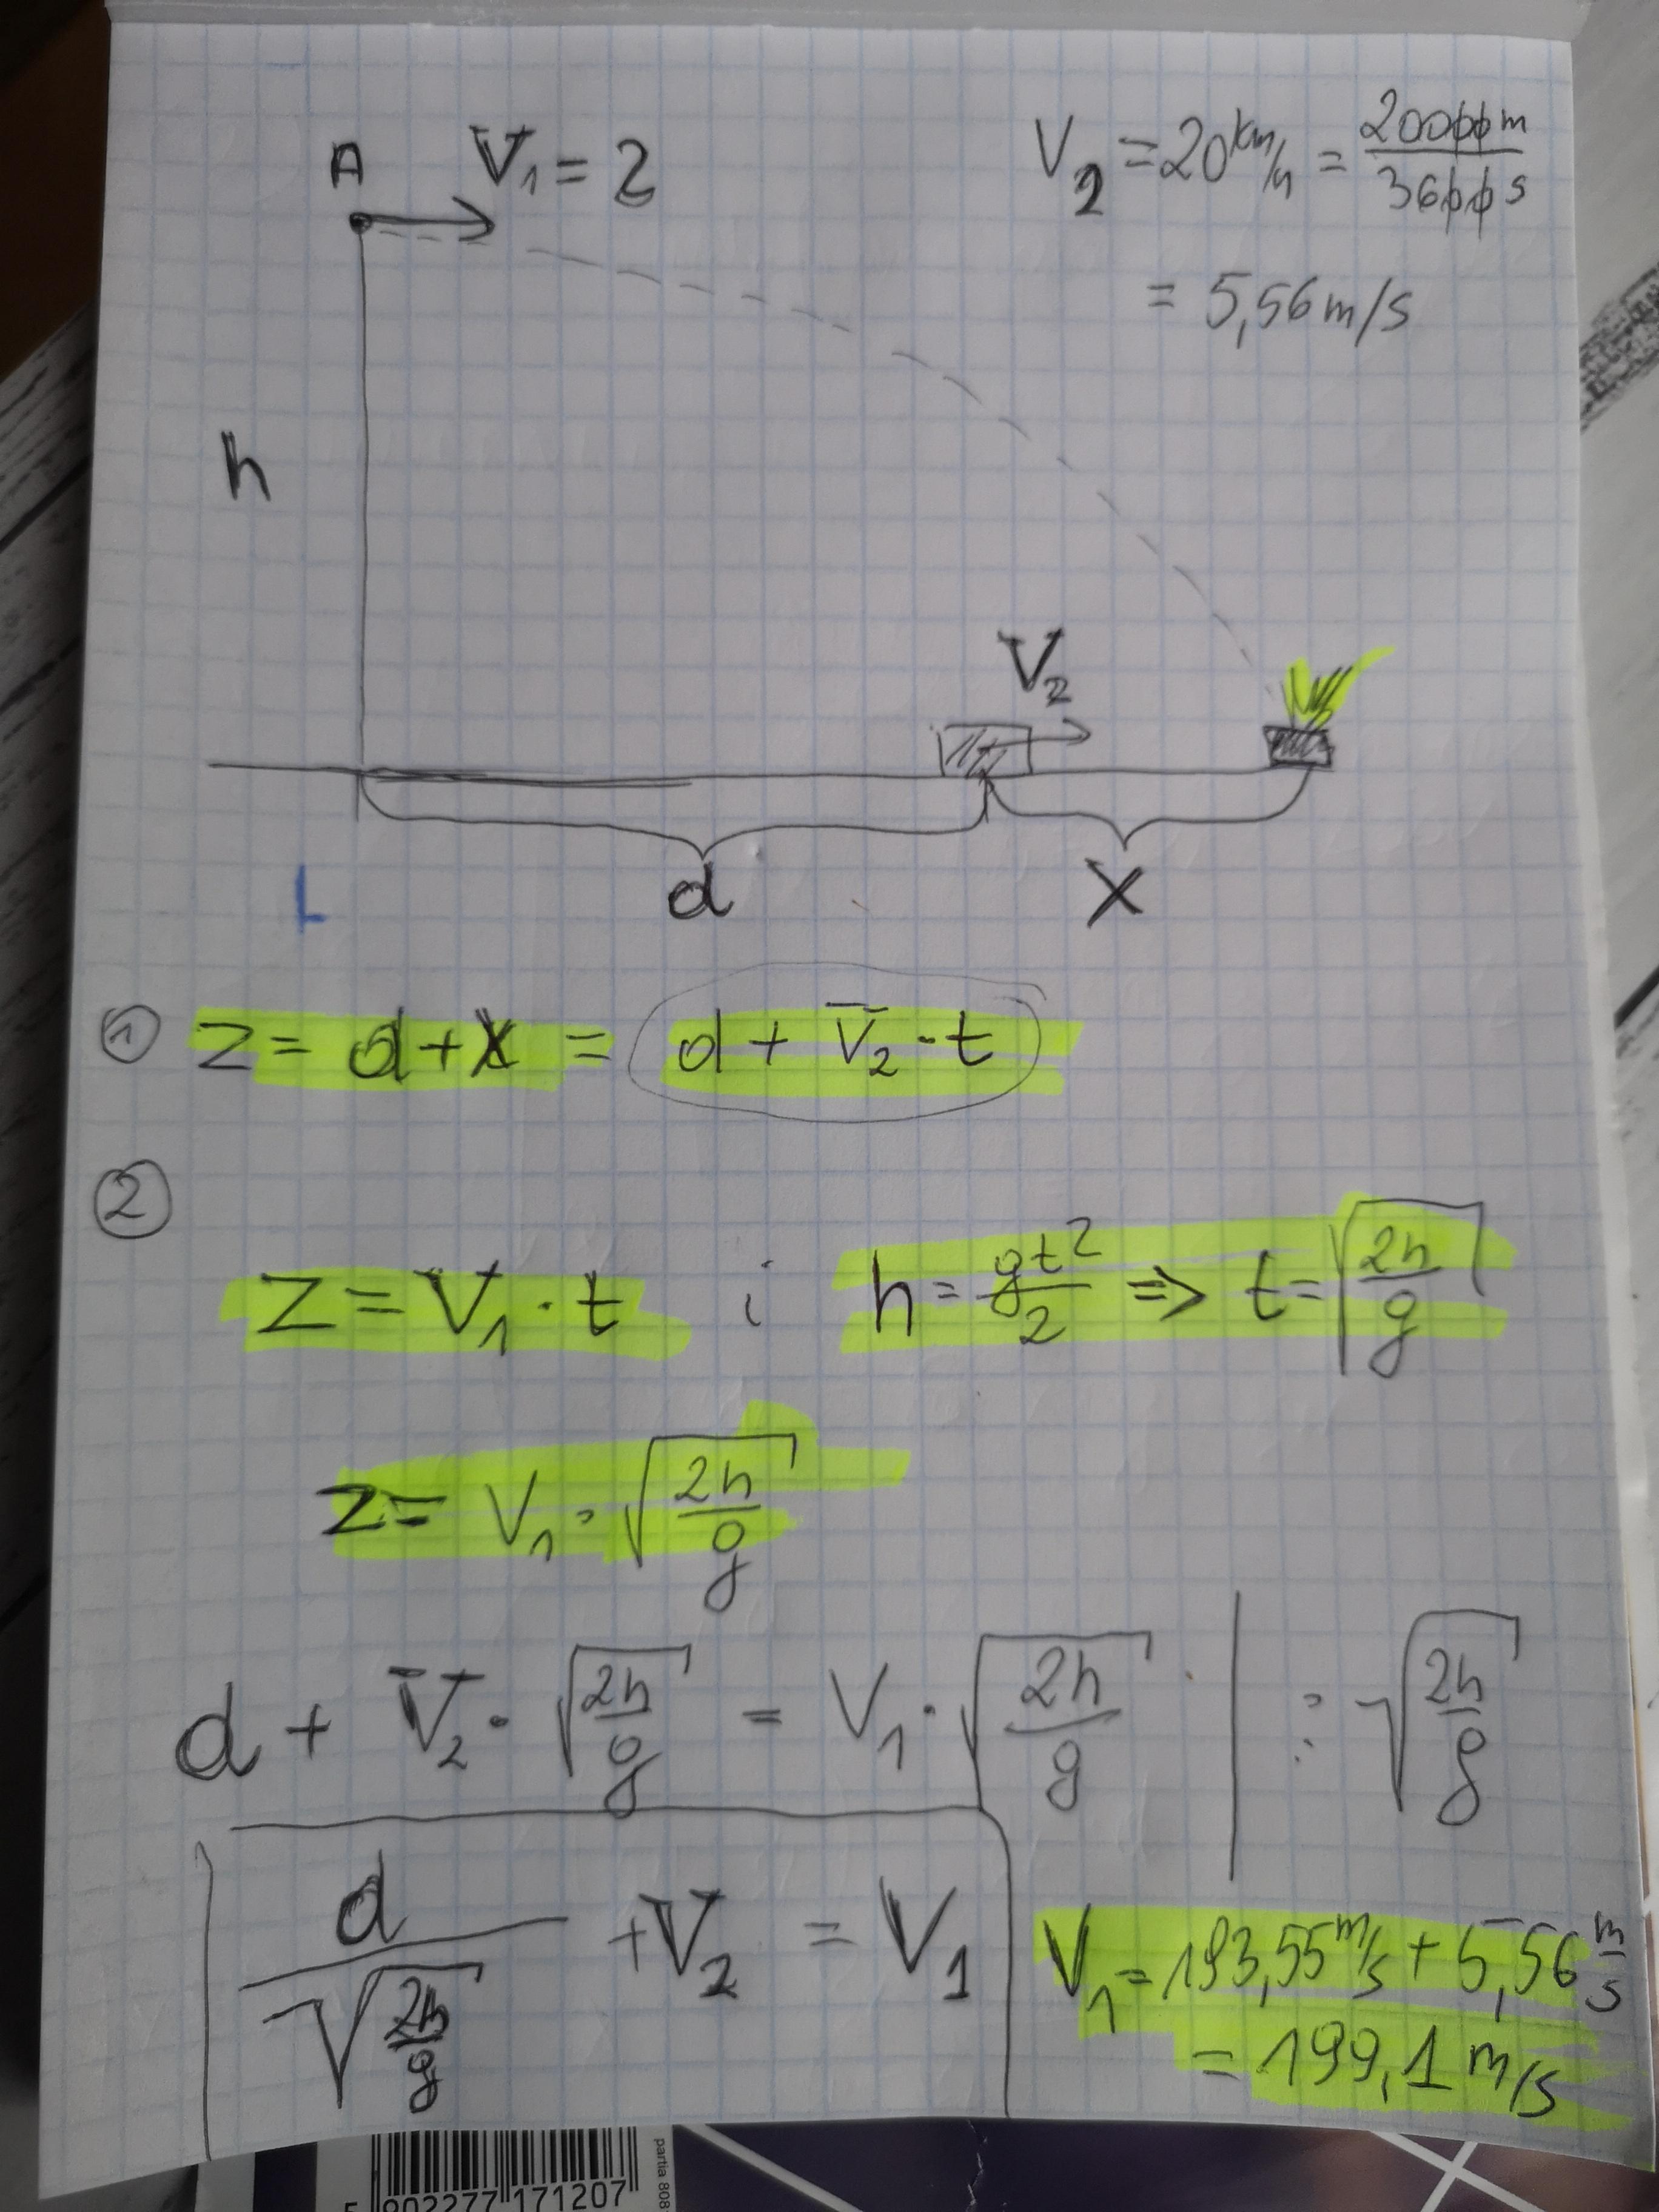 A V₁ = ?
V₂ = 20 km/h = 20000m / 3600s
= 5,56 m/s
h
V₂
d x
① z = d + x = d + V₂ · t
②
z = V₁ · t i h = gt²/2 => t = √(2h/g)
z = V₁ · √(2h/g)
d + V₂ · √(2h/g) = V₁ · √(2h/g) | : √(2h/g)
d/√(2h/g) + V₂ = V₁
V₁ = 193,55 m/s + 5,56 m/s
= 199,1 m/s
5 902277 171207
partia 808